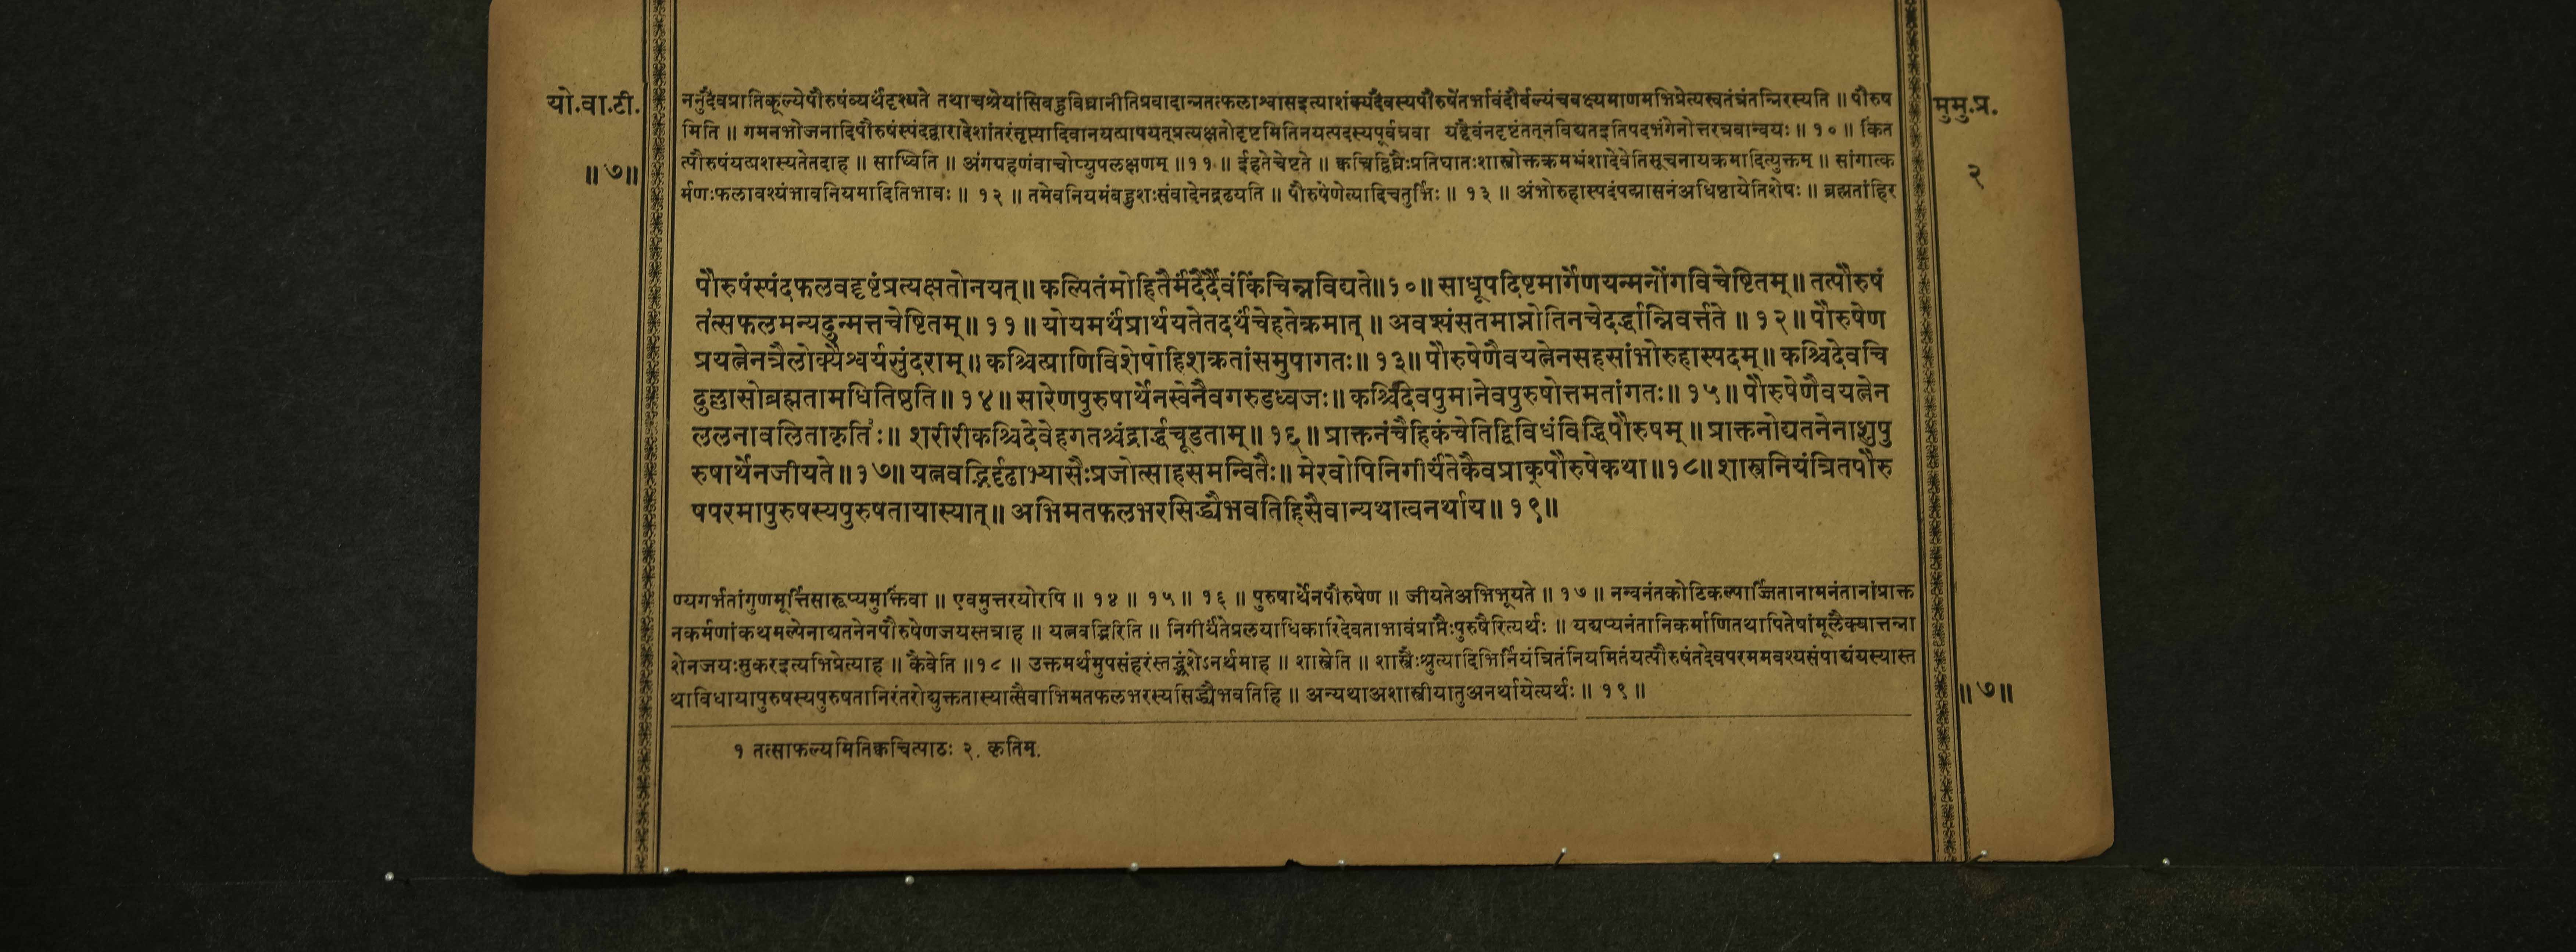 यो.वा.टी.
॥७॥
ननुदैवप्रातिकूल्येपौरुषंव्यर्थंदृश्यते तथाचश्रेयांसिबहुविघ्नानीतिप्रवादान्नतत्फलाश्वासइत्याशंक्यदैवस्यपौरुषेंतर्भावंदौर्बल्यंचवक्ष्यमाणमभिप्रेत्यस्वतंत्रंतन्निरस्यति ॥ पौरुष
मिति ॥ गमनभोजनादिपौरुषंस्पंदद्वारादेशांतरंतृप्त्यादिवानयत्प्रापयत्प्रत्यक्षतोदृष्टमितिनयत्पदस्यपूर्वत्रवा यद्दैवंनदृष्टंतत्नविद्यतइतिपदभंगेनोत्तरत्रवान्वयः ॥ १० ॥ किंत
त्पौरुषंयत्प्रशस्यतेतदाह ॥ साध्विति ॥ अंगग्रहणंवाचोप्युपलक्षणम् ॥११॥ ईहतेचेष्टते ॥ क्वचिद्विघ्नैःप्रतिघातःशास्त्रोक्तक्रमभ्रंशादेवेतिसूचनायक्रमादित्युक्तम् ॥ सांगात्क
र्मणःफलावश्यंभावनियमादितिभावः ॥ १२ ॥ तमेवनियमंबहुशःसंवादेनद्रढयति ॥ पौरुषेणेत्यादिचतुर्भिः ॥ १३ ॥ अंभोरुहास्पदंपद्मासनंअधिष्ठायेतिशेषः ॥ ब्रह्मतांहिर
मुमु.प्र.
२
पौरुषंस्पंदफलवद्दृष्टंप्रत्यक्षतोनयत्॥ कल्पितंमोहितैर्मंदैर्दैवंकिंचिन्नविद्यते॥१०॥ साधूपदिष्टमार्गेणयन्मनोंगविचेष्टितम्॥ तत्पौरुषं
तत्सफलमन्यदुन्मत्तचेष्टितम्॥ ११॥ योयमर्थंप्रार्थयतेतदर्थंचेहतेक्रमात्॥ अवश्यंसतमाप्नोतिनचेदर्द्धान्निवर्त्तते ॥ १२॥ पौरुषेण
प्रयत्नेनत्रैलोक्यैश्वर्यसुंदराम्॥ कश्चित्प्राणिविशेषोहिशक्रतांसमुपागतः॥ १३॥ पौरुषेणैवयत्नेनसहसांभोरुहास्पदम्॥ कश्चिदेवचि
दुल्लासोब्रह्मतामधितिष्ठति॥ १४॥ सारेणपुरुषार्थेनस्वेनैवगरुडध्वजः॥ कश्चिदेवपुमानेवपुरुषोत्तमतांगतः॥ १५॥ पौरुषेणैवयत्नेन
ललनावलिताकृतिः॥ शरीरीकश्चिदेवेहगतश्चंद्रार्द्धचूडताम्॥ १६॥ प्राक्तनंचैहिकंचेतिद्विविधंविद्धिपौरुषम्॥ प्राक्तनोद्यतनेनाशुपु
रुषार्थेनजीयते॥१७॥ यत्नवद्भिर्दृढाभ्यासैःप्रजोत्साहसमन्वितैः॥ मेरवोपिनिगीर्यंतेकैवप्राक्पौरुषेकथा॥१८॥ शास्त्रनियंत्रितपौरु
षपरमापुरुषस्यपुरुषतायास्यात्॥ अभिमतफलभरसिद्ध्यैभवतिहिसैवान्यथात्वनर्थाय॥ १९॥
ण्यगर्भतांगुणमूर्त्तिसारूप्यमुक्तिंवा ॥ एवमुत्तरयोरपि ॥ १४ ॥ १५ ॥ १६ ॥ पुरुषार्थेनपौरुषेण ॥ जीयतेअभिभूयते ॥ १७ ॥ नन्वनंतकोटिकल्पार्ज्जितानामनंतानांप्राक्त
नकर्मणांकथमल्पेनाद्यतनेनपौरुषेणजयस्तत्राह ॥ यत्नवद्भिरिति ॥ निगीर्यंतेप्रलयाधिकारिदेवताभावंप्राप्तैःपुरुषैरित्यर्थः ॥ यद्यप्यनंतानिकर्माणितथापितेषांमूलैक्यात्तन्ना
शेनजयःसुकरइत्यभिप्रेत्याह ॥ कैवेति ॥१८ ॥ उक्तमर्थमुपसंहरंस्तद्भ्रंशेऽनर्थमाह ॥ शास्त्रेति ॥ शास्त्रैःश्रुत्यादिभिर्नियंत्रितंनियमितंयत्पौरुषंतदेवपरममवश्यसंपाद्यंयस्यास्त
थाविधायापुरुषस्यपुरुषतानिरंतरोद्युक्ततास्यात्सैवाभिमतफलभरस्यसिद्ध्यैभवतिहि ॥ अन्यथाअशास्त्रीयातुअनर्थायेत्यर्थः ॥ १९ ॥
॥७॥
१ तत्साफल्यमितिक्वचित्पाठः २. कृतिम्.